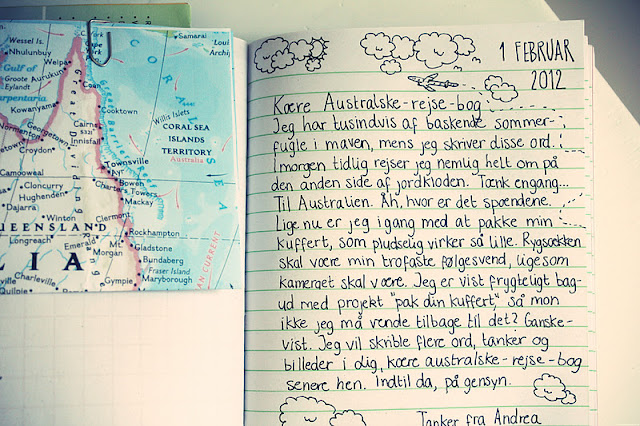 Wessel Is.
Nhulunbuy
Gulf of
Groote
Eylandt
Carpentaria
Weipa
Aurukun
Cape
York
Pen.
Coen
Kowanyama
Normanton
Georgetown
Croydon
Camooweal
Cloncurry
Hughenden
Dajarra
Winton
QUEENSLAND
Longreach
Emerald
Mt.
Morgan
Charleville
Quilpie
Cooktown
Cairns
Innisfail
Townsville
Ayr
Bowen
Charters
Towers
Mackay
Clermont
Rockhampton
Gladstone
Bundaberg
Fraser Island
Maryborough
Gympie
Great Dividing
Great Barrier Reef
CORAL SEA
Samarai
Willis Islets
CORAL SEA
ISLANDS
TERRITORY
Australia
AN CURRENT
LIA
1 FEBRUAR
2012
Kære Australske-rejse-bog
Jeg har tusindvis af baskende sommer-
fugle i maven, mens jeg skriver disse ord.
I morgen tidlig rejser jeg nemlig helt om på
den anden side af jordkloden. Tænk engang...
Til Australien. Åh, hvor er det spændene.
Lige nu er jeg i gang med at pakke min
kuffert, som pludselig virker så lille. Rygsækken
skal være min trofaste følgesvend, ligesom
kameraet skal være. Jeg er vist frygteligt bag-
ud med projekt "pak din kuffert," så mon
ikke jeg må vende tilbage til det? Ganske-
vist. Jeg vil skrible flere ord, tanker og
billeder i dig, kære australske-rejse-bog
senere hen. Indtil da, på gensyn.
Tanker fra Andrea